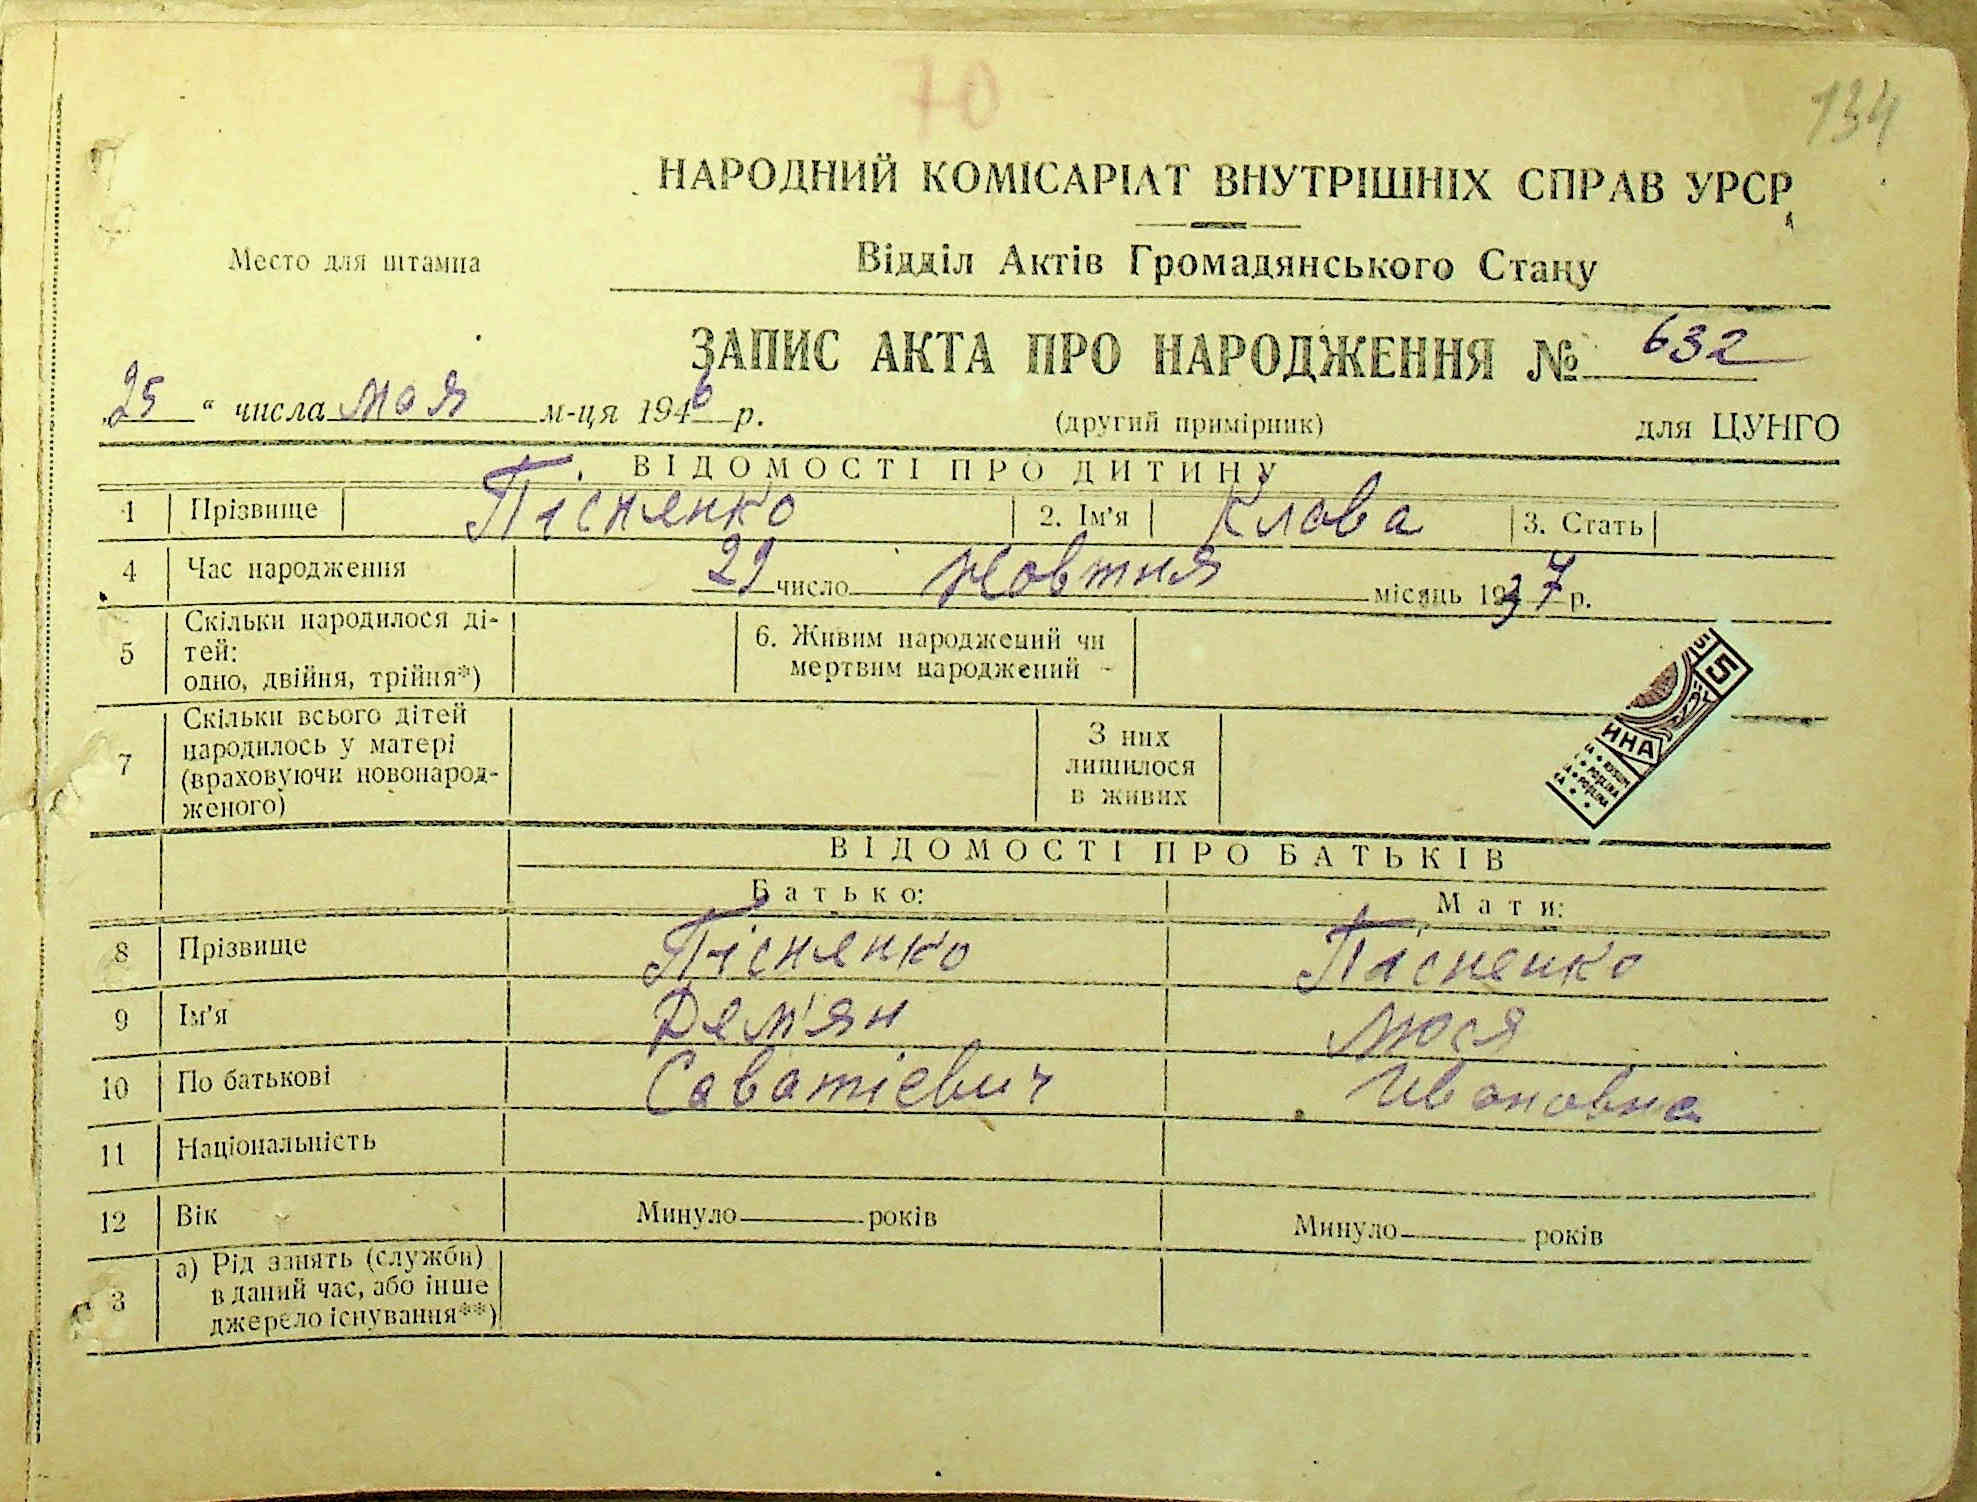 70
134
НАРОДНИЙ КОМІСАРІАТ ВНУТРІШНІХ СПРАВ УРСР
Место для штампа
Відділ Актів Громадянського Стану
ЗАПИС АКТА ПРО НАРОДЖЕННЯ № 632
„25 “ числа мая м-ця 1946 р.
(другий примірник)
для ЦУНГО
ВІДОМОСТІ ПРО ДИТИНУ
1 Прізвище Пісненко 2. Ім'я Клава 3. Стать
4 Час народження 29 число Жовтня місяць 1937 р.
5 Скільки народилося ді-
тей:
одно, двійня, трійня*)
6. Живим народжений чи
мертвим народжений -
7 Скільки всього дітей
народилось у матері
(враховуючи новонарод-
женого)
З них
лишилося
в живих
5
ИНА
ВІДОМОСТІ ПРО БАТЬКІВ
Батько: Мати:
8 Прізвище Пісненко Пісненко
9 Ім'я Дем'ян Люся
10 По батькові Саватієвич Ивановна
11 Національність
12 Вік Минуло років Минуло років
3 а) Рід занять (служби)
в даний час, або інше
джерело існування**)